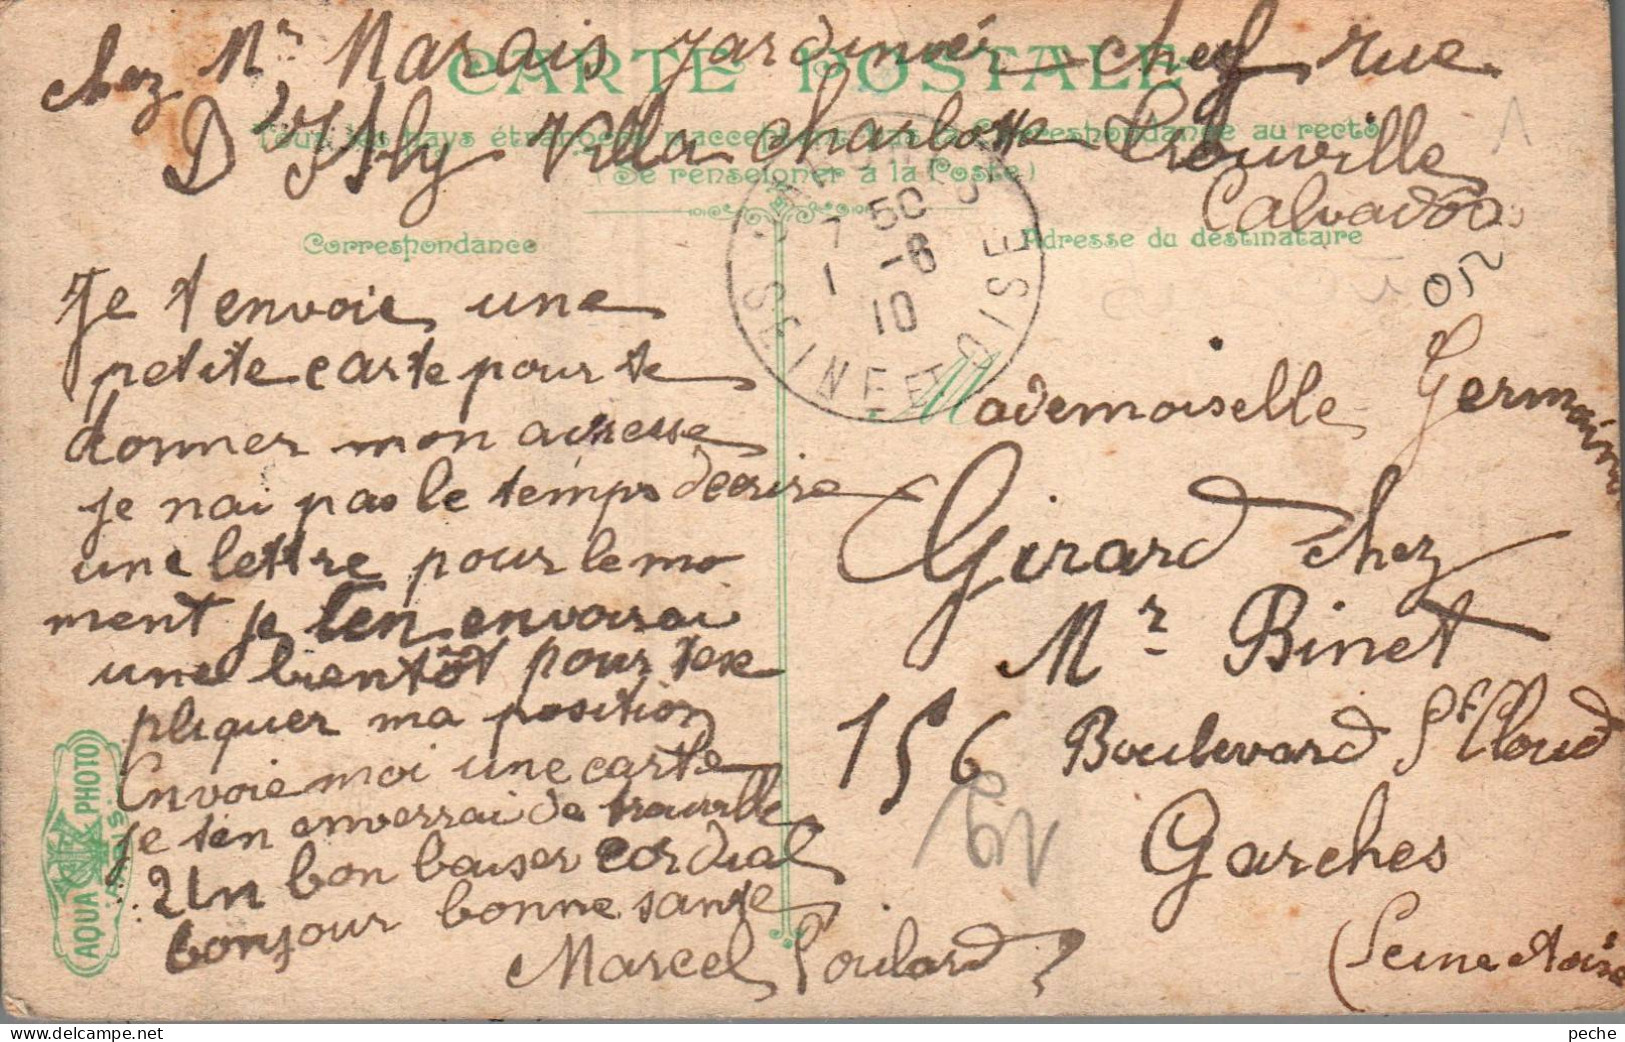 chez Mr Marais jardinier chef rue
D'Isly Villa Charlotte Trouville
Calvados
CARTE POSTALE
Tous les pays étrangers n'acceptent pas la Correspondance au recto
(Se renseigner à la Poste)
Correspondance
Adresse du destinataire
7 50
1 -8
10
SEINE ET OISE
Je t envoie une
petite carte pour te
donner mon adresse
je nai pas le temps decrire
une lettre pour le mo
ment je ten envoirai
une bientôt pour tex
pliquer ma position
Envoie moi une carte
je ten enverrai de trouville
Un bon baiser cordial
bonjour bonne sante
Marcel Poulard
Mademoiselle Germaine
Girard chez
Mr Binet
156 Boulevard St Cloud
Garches
(Seine et oise
AQUA PHOTO
PARIS
peche